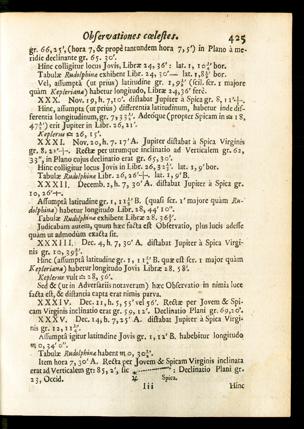 Observationes cœlestes. 425
gr. 66,25', (hora 7, & propè tantundem hora 7, 5') in Plano à me-
ridie declinante gr. 65. 30'.
Hinc colligitur locus Jovis, Libræ 24, 36': lat. 1, 10¾' bor.
Tabulæ Rudolphinæ exhibent Libr. 24, 30'— lat. 1, 8½' bor.
Vel, assumptâ (ut prius) latitudine gr. 1, 9¾' (scil. ser. 1 majore
quàm Kepleriana) habetur longitudo, Libræ 24, 36' ferè.
XXX. Nov. 19, h. 7, 10'. distabat Jupiter à Spica gr. 8, 11'
Hinc, assumptâ (ut prius) differentia latitudinum, habetur inde dif-
ferentia longitudinum, gr. 7, 33½'. Adeóque (propter Spicam in ♎ 18,
47½') erit Jupiter in Libr. 26, 21'.
Keplerus ♎ 26, 15'.
XXXI. Nov. 20, h. 7. 17' A. Jupiter distabat à Spica Virginis
gr. 8. 21' Rectæ per utrumque inclinatio ad Verticalem gr. 62,
33'', in Plano cujus declinatio erat gr. 65, 30'.
Hinc colligitur locus Jovis in Libr. 26, lat. 1, 9' bor.
Tabulæ Rudolphinæ Libr. 26, 26' lat. 1, 9' B.
XXXII. Decemb. 2, h. 7, 30' A. distabat Jupiter à Spica gr.
10, 26'
Assumptâ latitudine gr. 1, 11½' B. (quasi scr. 2' majore quàm Ru-
dolphina) habetur longitudo Libr. 28, 44' 10''.
Tabulæ Rudolphinæ exhibent Libræ 28. 36½'.
Judicabam autem, quum hæc facta est Observatio, plus lucis adesse
quàm ut admodum exacta sit.
XXXIII. Dec. 4, h. 7, 30' A. distabat Jupiter à Spica Virgi-
nis gr. 10, 39¾'.
Hinc (assumptâ latitudine gr. 1, 11½' B. quæ est scr. 1 major quàm
Kepleriana) habetur longitudo Jovis Libræ 28. 58'.
Keplerus vult ♎ 28, 56'.
Sed & (ut in Adversariis notaveram) hæc Observatio in nimia luce
facta est, & distantia capta erat nimis parva.
XXXIV. Dec. 11, h. 5, 55' vel 56'. Rectæ per Jovem & Spi-
cam Virginis inclinatio erat gr. 59, 12'. Declinatio Plani gr. 69, 20'.
XXXV. Dec. 14, h. 7, 25' A. distabat Jupiter à Spica Virgi-
nis gr. 12, 11½'.
Assumptâ igitur latitudine Jovis gr. 1, 12' B. habebitur longitudo
♏ 0, 34' 0''.
Tabulæ Rudolphinæ habent ♏ 0, 30½'.
Item hora 7, 30' A. Recta per Jovem & Spicam Virginis inclinata
erat ad Verticalem gr. 85, 2', sic : Declinatio Plani gr.
23, Occid. ♃ Spica.
Iii Hinc